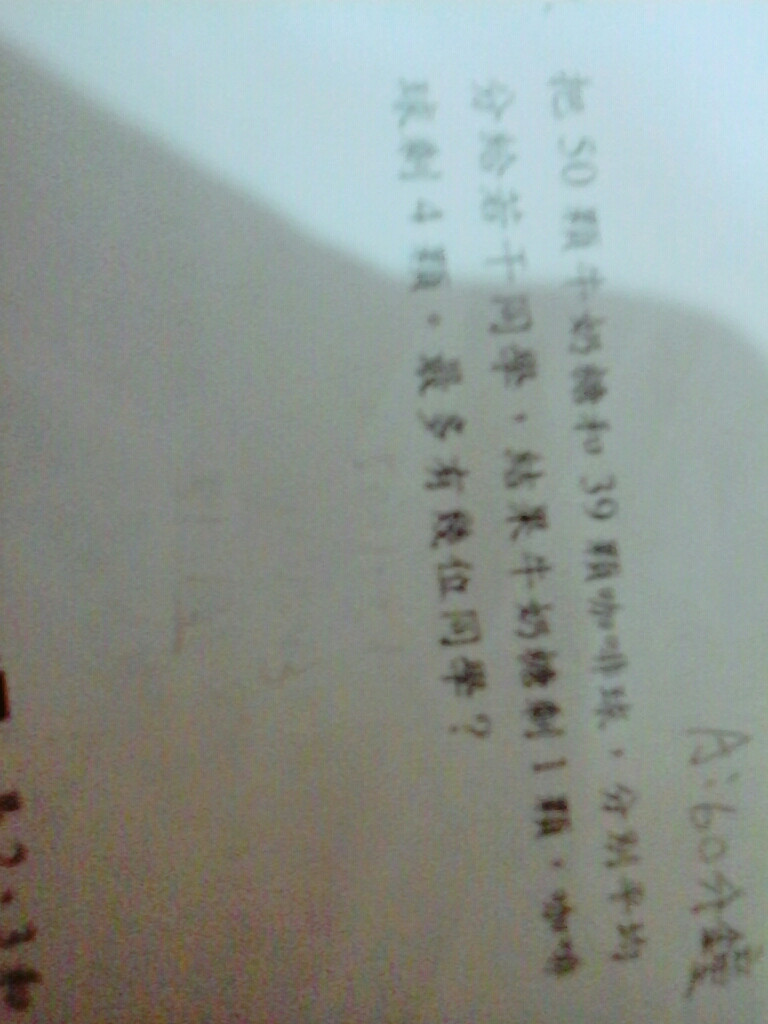 A:60分鐘
把50顆牛奶糖和39顆咖啡球,分別平均
分給若干同學,結果牛奶糖剩1顆,咖啡
球剩4顆。最多有幾位同學?